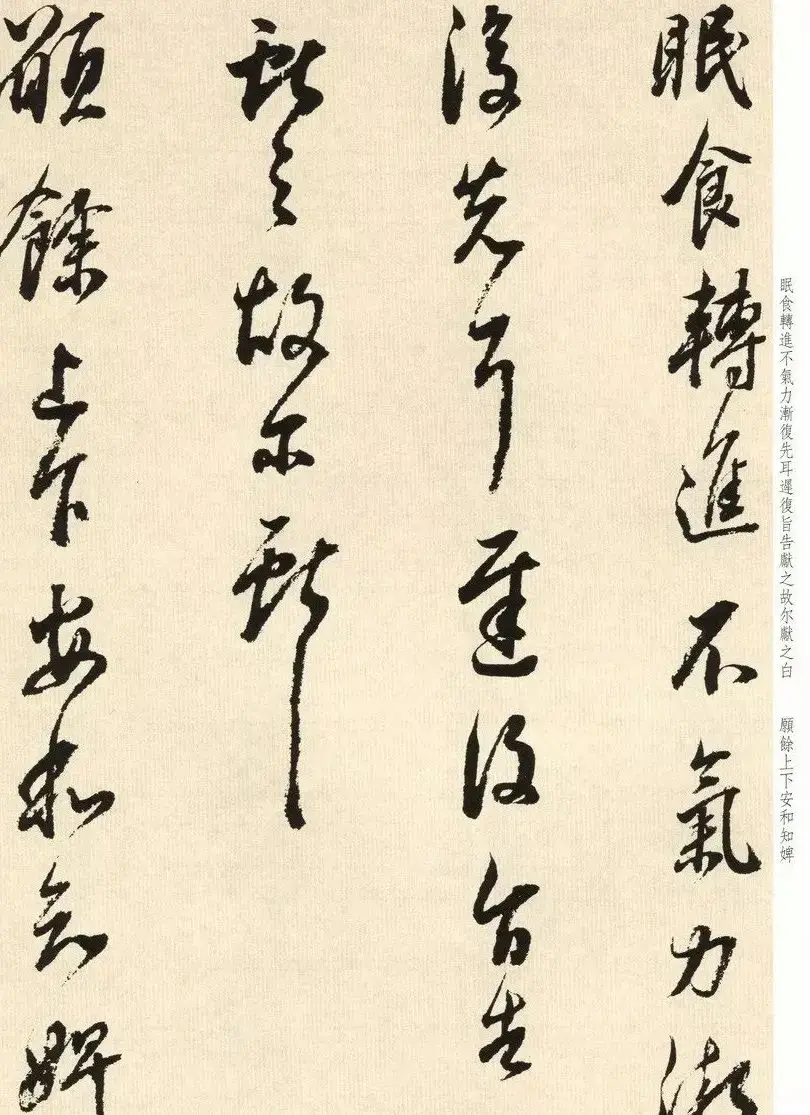 眠食轉進不氣力漸復先耳遲復旨告獻之故尔獻之白　願餘上下安和知婢
眠食轉進不氣力漸
復先耳遲復旨告
獻之故尔獻之白
願餘上下安和知婢